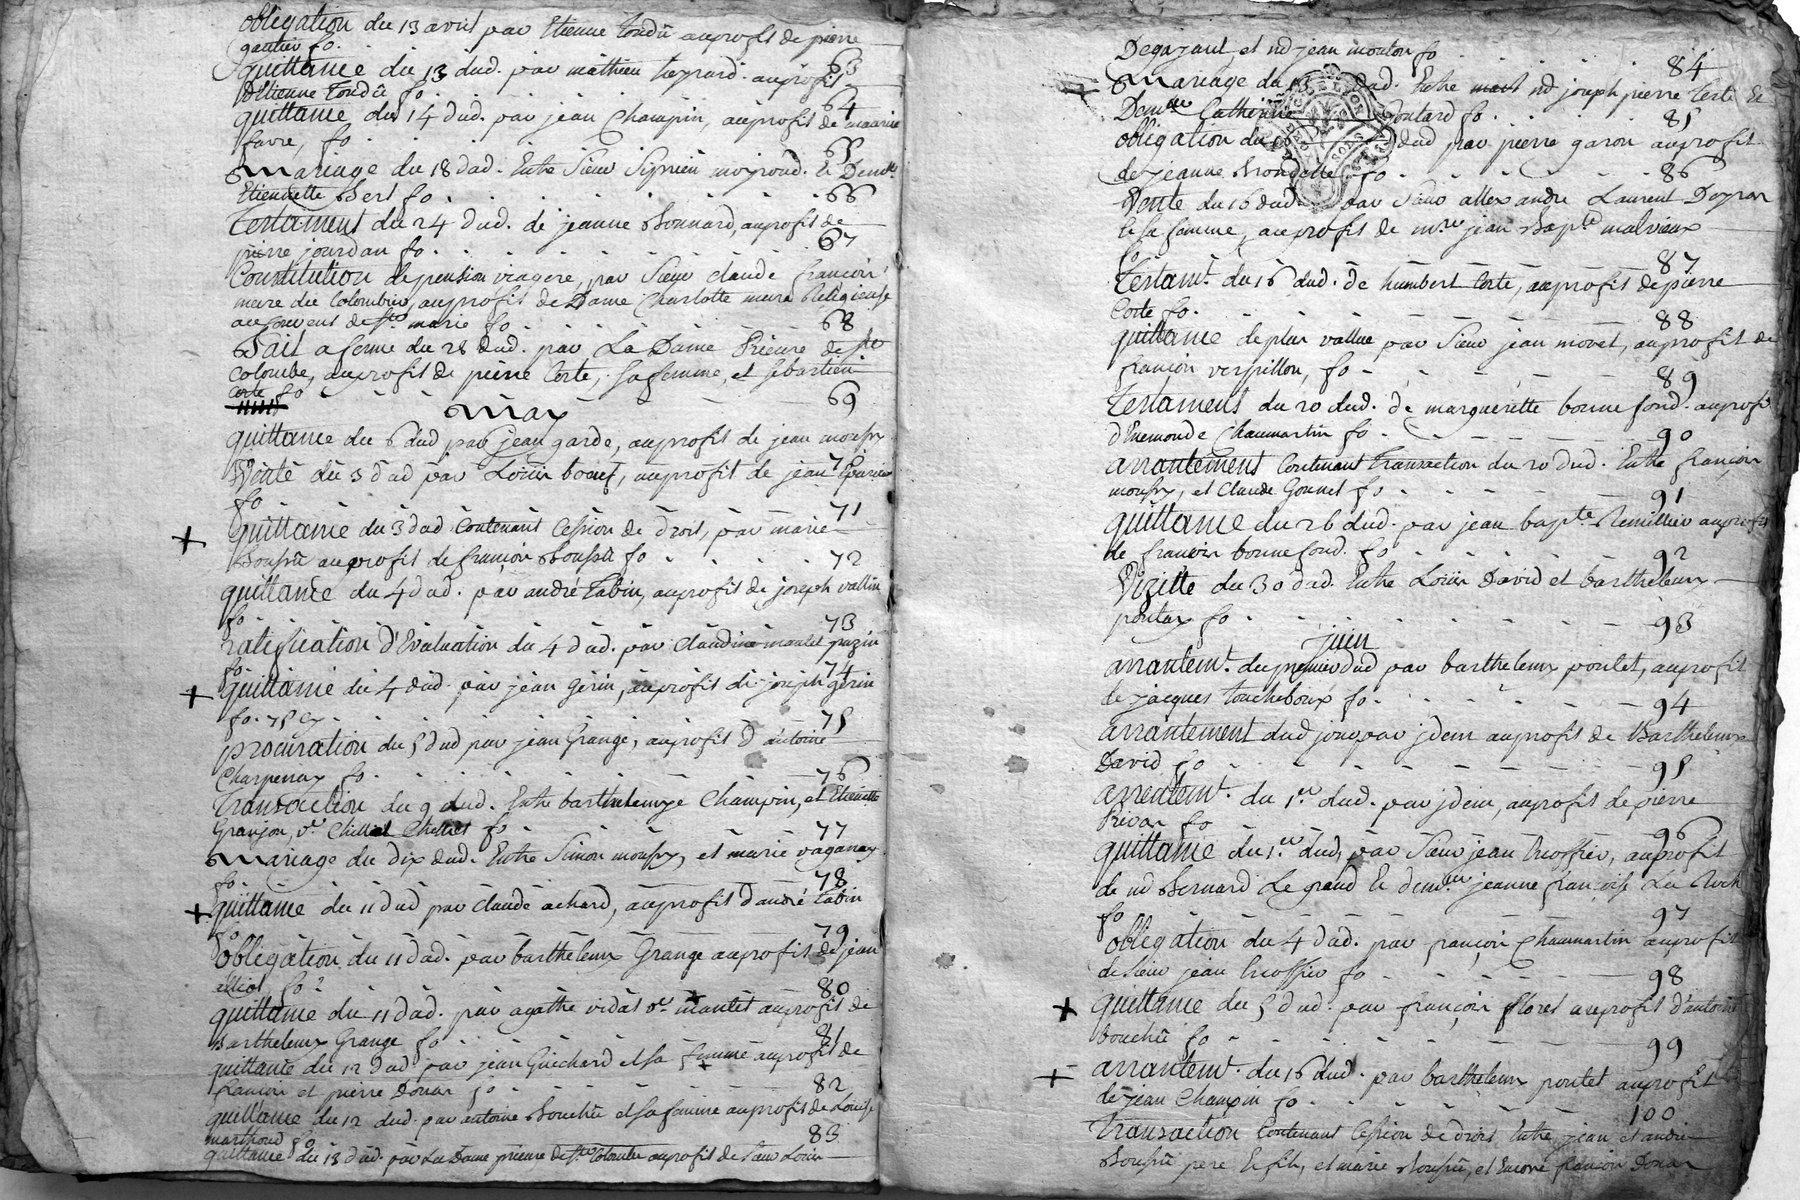 obligation du 13 avril par Etienne tondû auprofit de pierre
gautier fo. 63
quittance du 13 dud. par mathieu auprofit
D'Etienne tondû fo. 64
quittance du 14 dud. par jean Champin, auprofit de maurice
favre, fo 65
mariage du 18 dud. Entre Sieur Siprien moyroud. & Demlle
Etiennette Bert fo 66
Testament du 24 dud. de jeanne Bonnard, auprofit de
pierre jourdan fo. 67
Constitution de pension viagere, par Sieur claude françois
meure du Colombier, auprofit de Dame Charlotte meure Religieuse
au couvent de Ste marie fo 68
Bail a ferme du 28 dud. par La Dame Prieure de Ste
Colombe, auprofit de pierre Corte, sa femme, et sebastien
Corte fo 69
may
quittance du 6 dud par jean garde, auprofit de jean mousy
70
Vente du 3 dud par Loüis boeuf, auprofit de jean
fo 71
+ quittance du 3 dud contenant Cession de droit, par marie
auprofit de françois fo 72
quittance du 4 dud. par andré Tabin, auprofit de joseph vallin
fo 73
ratification d'Evaluation du 4 dud. par Claudine moulet
fo 74
+ quittance du 4 dud. par jean gerin, auprofit de joseph gerin
fo. 75
procuration du 5 dud par jean Grange, auprofit d'antoine
Charpenay fo. 76
Transaction du 9 dud. Entre barthelemy Champin, et Etiennette
Granjon, ve Chilliet fo 77
mariage du dix dud. Entre Simon mousy, et marie vaganay
fo. 78
+ quittance du 11 dud par claude achard, auprofit d'andré tabin
fo 79
obligation du 11 dud. par barthelemy Grange auprofit de jean
fo 80
quittance du 11 dud. par agathe vidal ve mantet auprofit de
Barthelemy Grange fo 81
quittance du 12 dud par jean Guichard et sa femme auprofit de
françois et pierre Donar fo 82
quittance du 12 dud. par antoine Bouchu et sa femme auprofit de Louise
marthoud fo 83
quittance du 13 dud. par La Dame prieure de Ste Colombe auprofit de Sieur Loüis
Degajant et nd jean mouton fo 84
mariage du dud. Entre nd joseph pierre & 
Demlle Catherine goutard fo. 85
obligation du dud par pierre garon auprofit
de jeanne fo 86
Vente du 16 dud. par Sieur allexandre Laurent
& sa femme, auprofit de mre jean Bapte malvieux
fo 87
Testamt. du 16 dud. de humbert Corte, auprofit de pierre
Corte fo. 88
quittance de plus vallue par Sieur jean movet, auprofit de
françois verpillon, fo 89
Testament du 20 dud. de marguerette bonnefond. auprofit
d'Enemonde Chaumartin fo 90
arrantement Contenant Transaction du 20 dud. Entre françois
mousy, et Claude Gonnet fo 91
quittance du 26 dud. par jean bapte Remillier auprofit
de francois bonnefond. fo 92
Vizitte du 30 dud. Entre Loüis David et barthelemy
fo 93
juin
arrantemt. du premier dud par barthelemy poulet, auprofit
de jacques toucheboeuf fo. 94
arrantement dud jour par jdem auprofit de Barthelemy
David fo 95
arrentemt. du 1er dud. par jdem, auprofit de pierre
fo 96
quittance du 1er dud, par Sieur jean trossier, auprofit
de nd Bernard Le grand & demlle jeanne françoise
fo 97
obligation du 4 dud. par françois chaumartin auprofit
de sieur jean trossier fo 98
+ quittance du 5 dud. par françois floret auprofit d'antoine
Bouchu fo 99
+ arrantemt. du 16 dud. par barthelemy poulet auprofit
de jean Champin fo 100
Transaction Contenant Cession de droit Entre jean et andré
pere & fils, et marie et Encore françois Donar